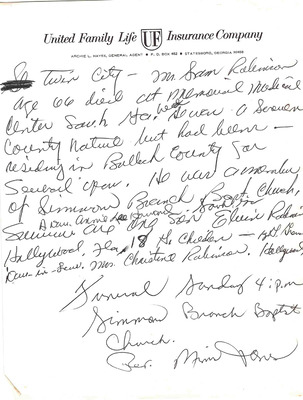 United Family Life UF Insurance Company
ARCHIE L. HAYES, GENERAL AGENT • P.O. BOX 462 • STATESBORO, GEORGIA 30458
Twin City - Mr. Sam Robinson
age 66 died at Memorial Medical
Center Savh Ga. He was a Screven
County Native but had been -
residing in Bulloch County for
Several years. He was a member
of Simmon Branch Bapt. Church,
Survivors are one Son Elvin
Hollywood, Fla. 18 Gr. Children -
Daw-in-Law. Mrs. Christine Robinson. Hollywood
Funeral Sunday 4:p.m
Simmon Branch Baptist
Church.
Rev.